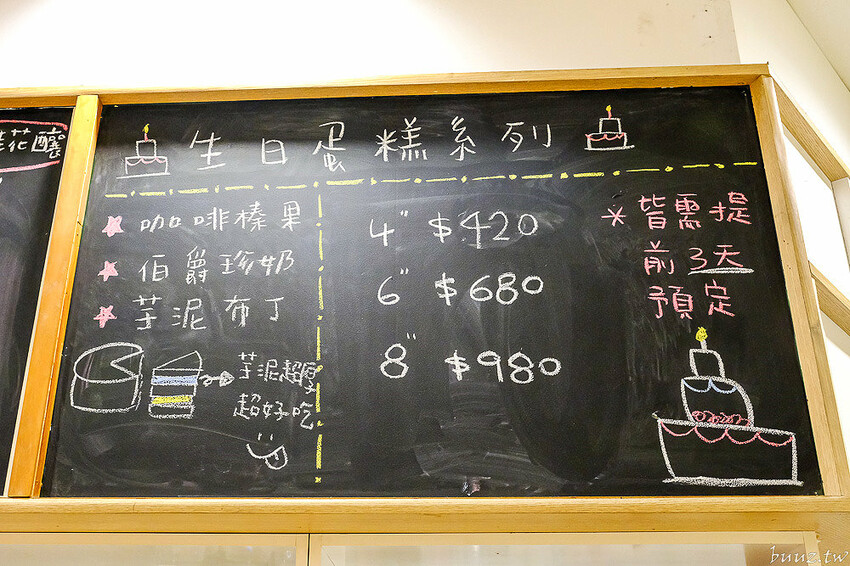 桂花釀
生日蛋糕系列
★ 咖啡榛果
★ 伯爵珍奶
★ 芋泥布丁
芋泥超厚
超好吃
4" $420
6" $680
8" $980
* 皆需提
前3天
預定
buuz.tw